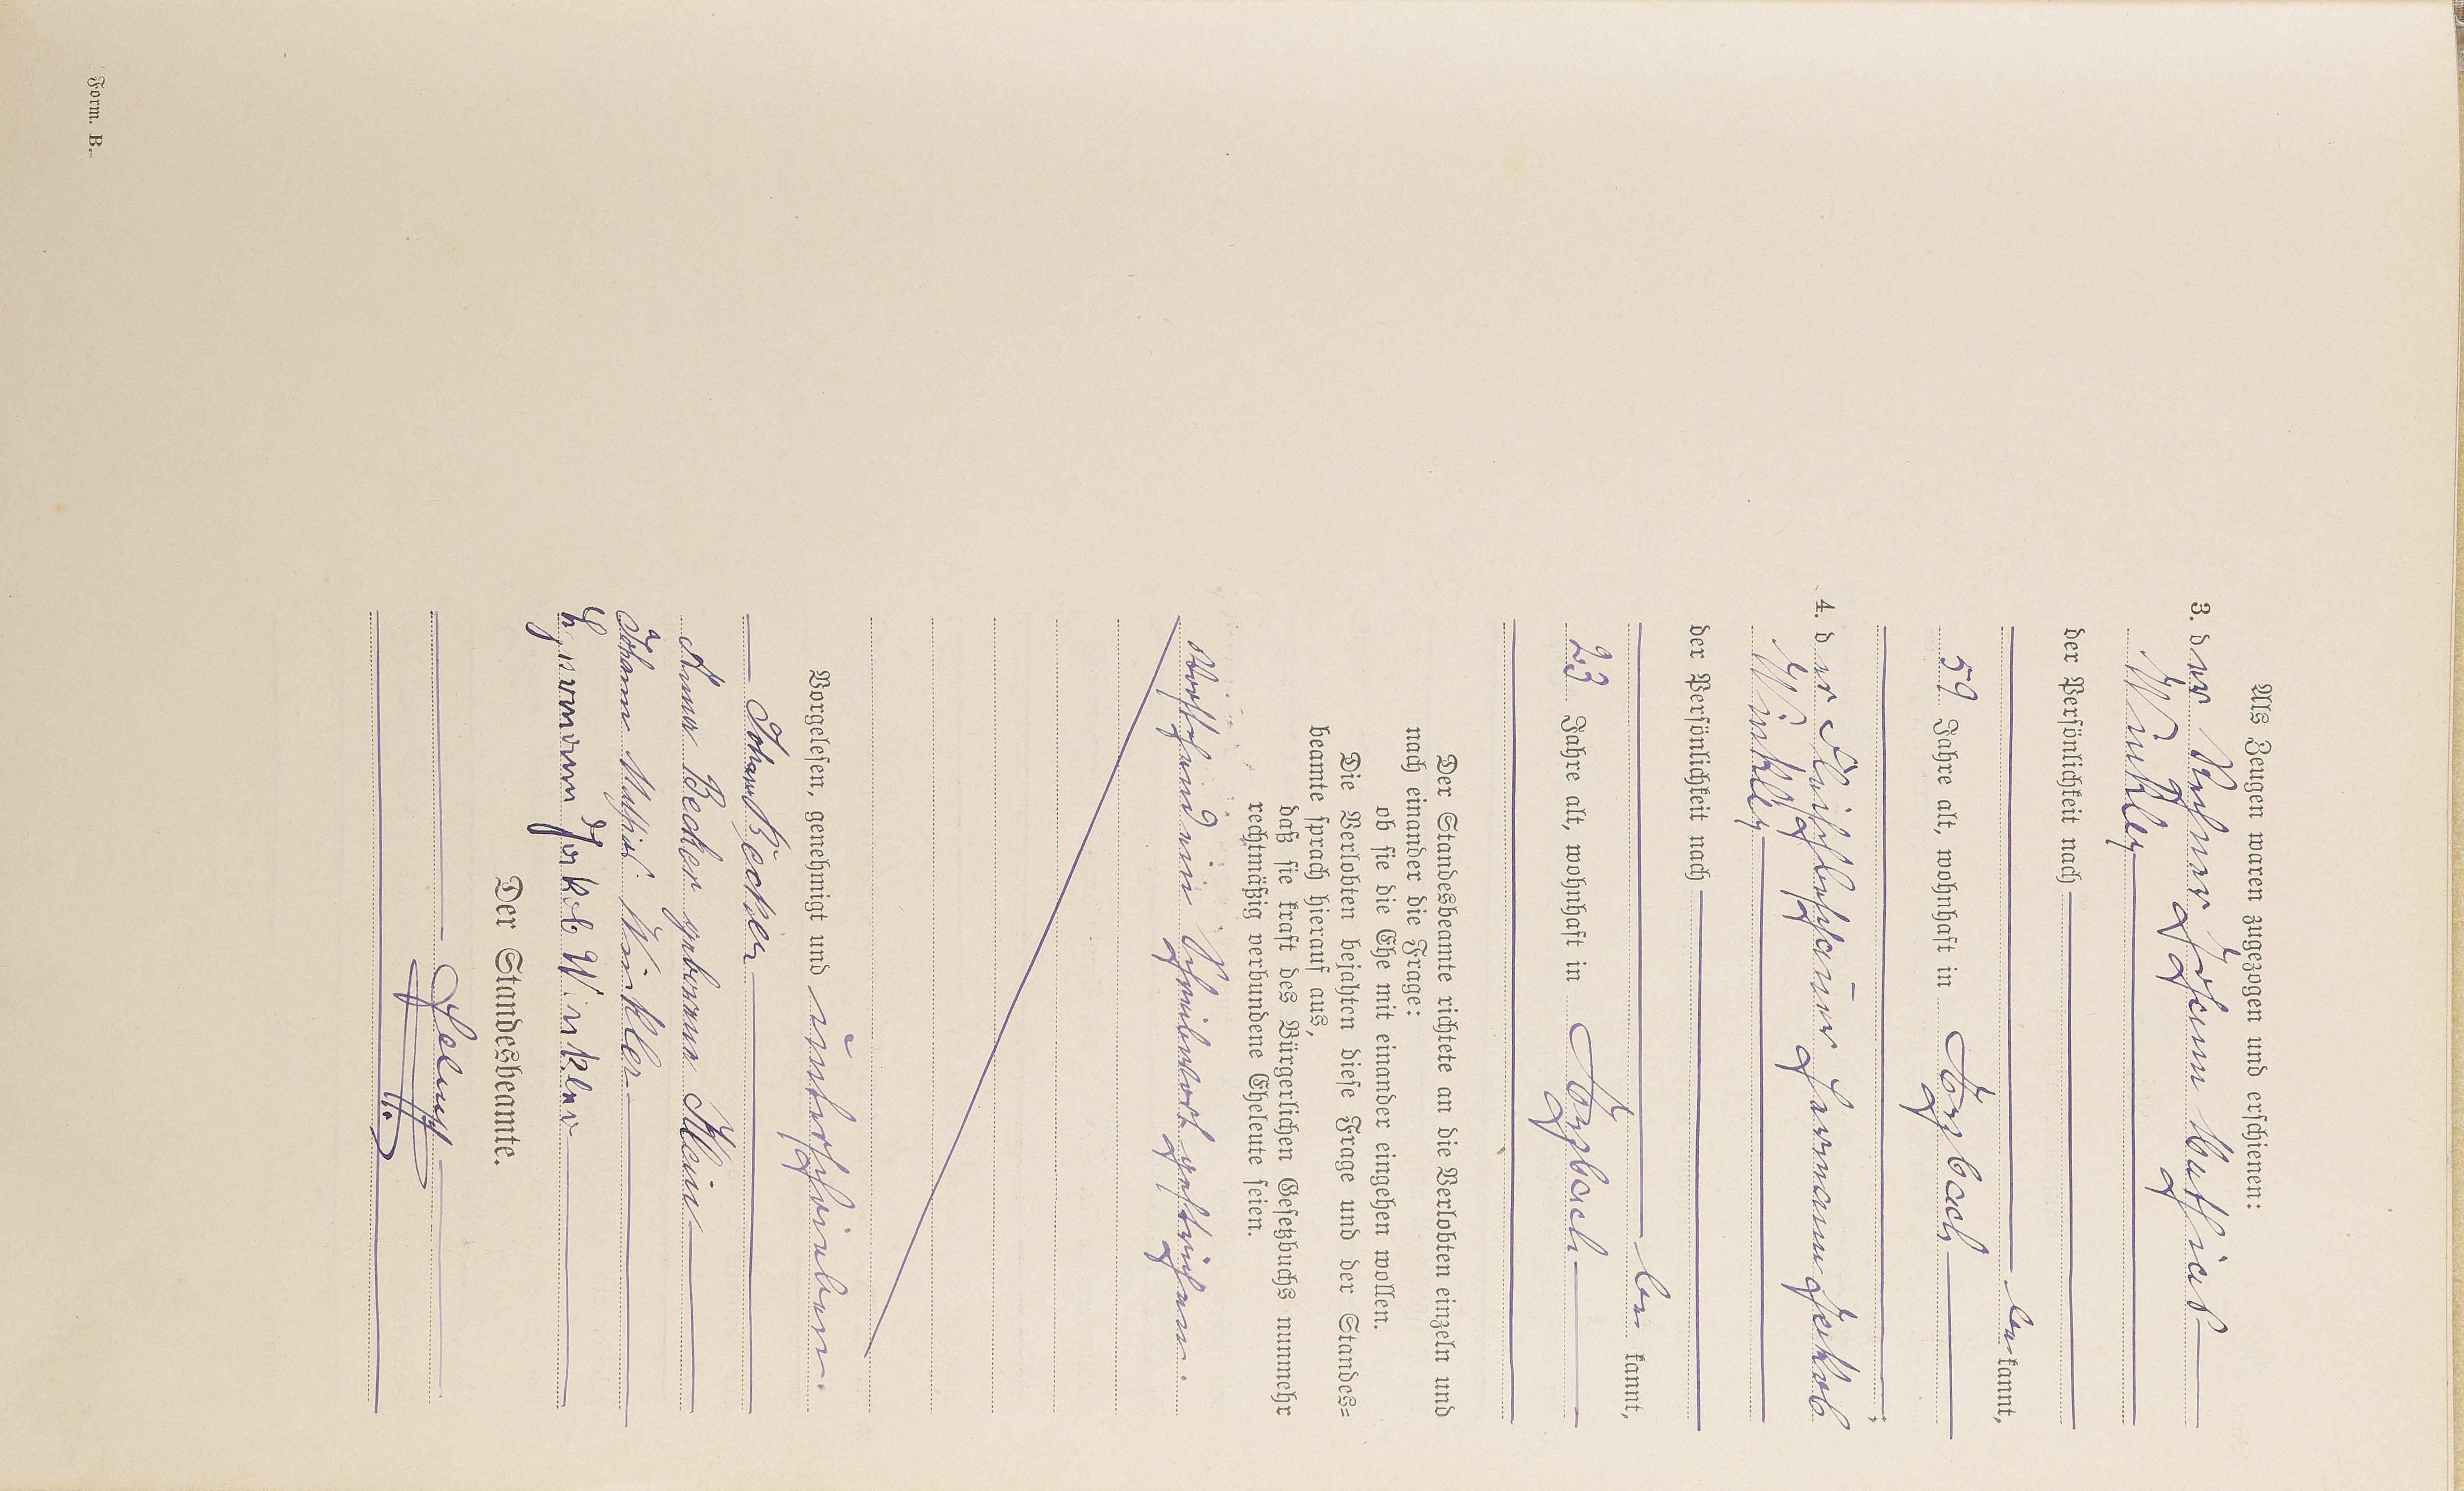 Als Zeugen waren zugezogen und erschienen:
3. der Johann Mathias
Winkler
der Persönlichkeit nach
be kannt,
59 Jahre alt, wohnhaft in Körzbach
4. der Hermann Jakob
Winkler
der Persönlichkeit nach
be kannt,
23 Jahre alt, wohnhaft in
Der Standesbeamte richtete an die Verlobten einzeln und
nach einander die Frage:
ob sie die Ehe mit einander eingehen wollen.
Die Verlobten bejahten diese Frage und der Standes=
beamte sprach hierauf aus,
daß sie kraft des Bürgerlichen Gesetzbuchs nunmehr
rechtmäßig verbundene Eheleute seien.
Vorstehend ein gestrichen.
Vorgelesen, genehmigt und unterschrieben.
Johann Becker
Anna Becker geborene Klein
Johann Mathias Winkler
Hermann Jakob Winkler
Der Standesbeamte.
Form. B.